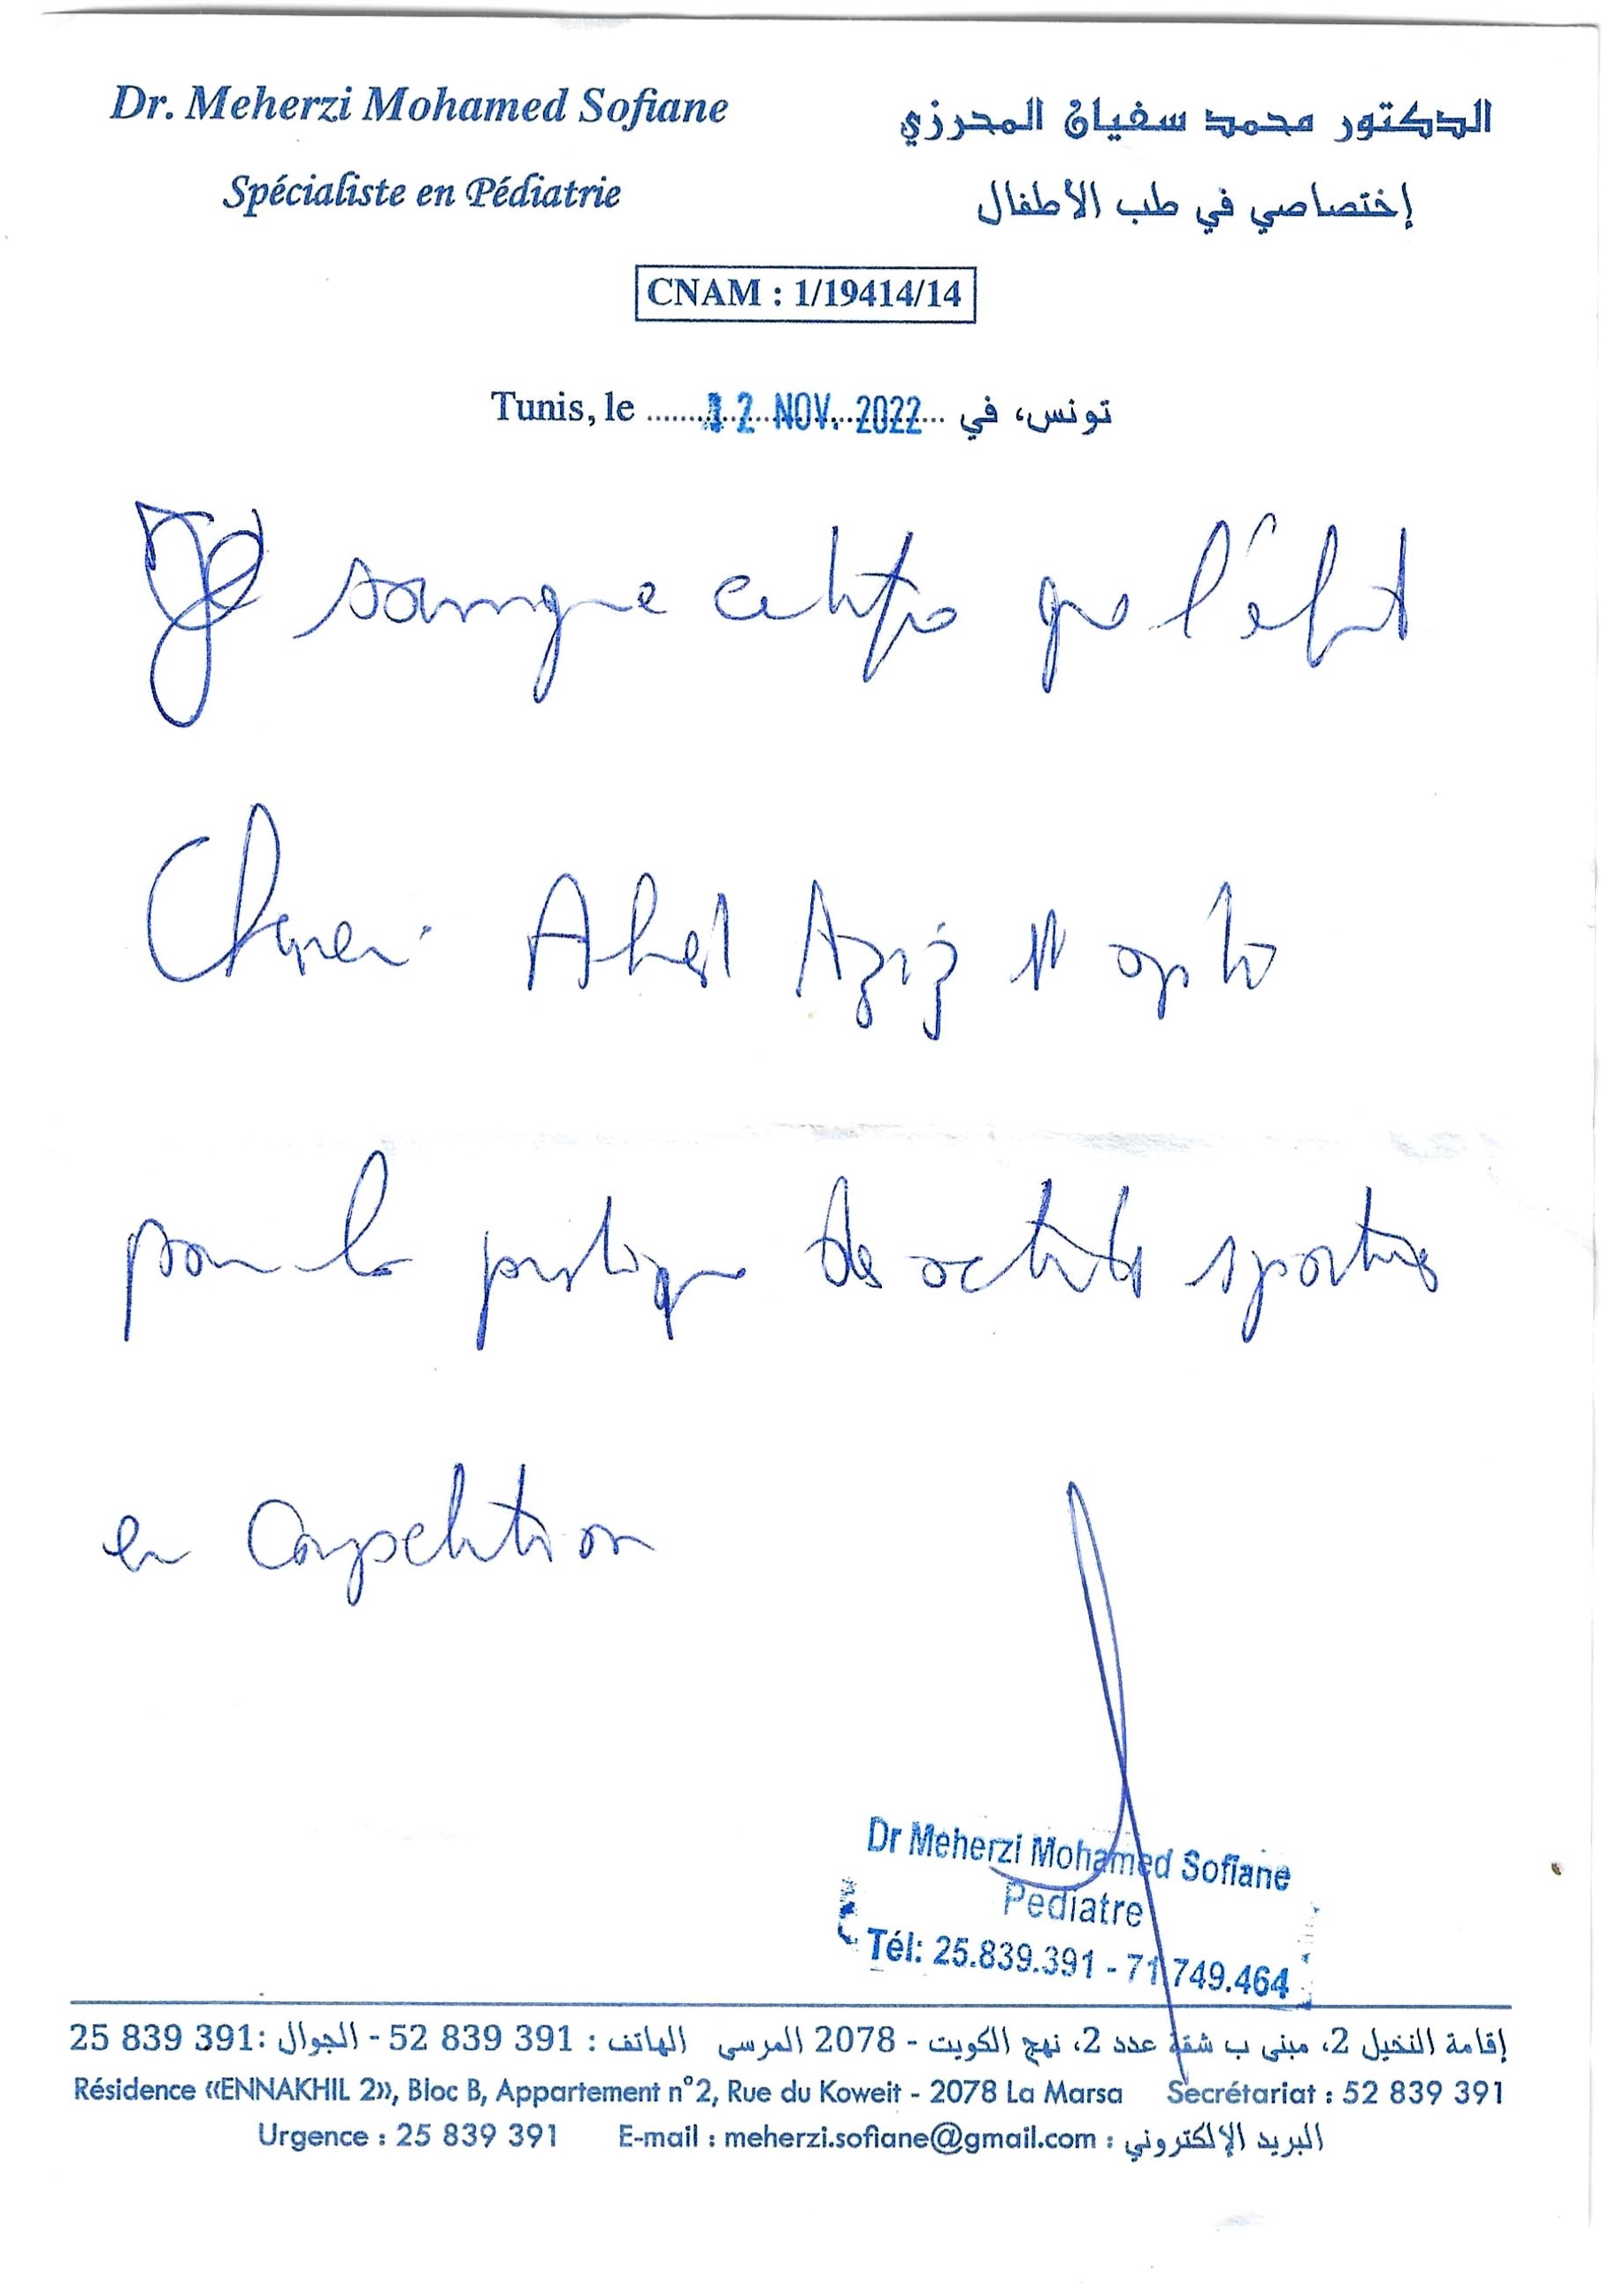 Dr. Meherzi Mohamed Sofiane
الدكتور محمد سفيان المحرزي
Spécialiste en Pédiatrie
إختصاصي في طب الأطفال
CNAM : 1/19414/14
Tunis, le 12 NOV. 2022 تونس، في
Je soussigné certifie que l'enfant
Aziz est apte
pour la pratique des activités sportives
en compétition
Dr Meherzi Mohamed Sofiane
Pediatre
Tél: 25.839.391 - 71.749.464
إقامة النخيل 2، مبنى ب شقة عدد 2، نهج الكويت - 2078 المرسى الهاتف : 52 839 391 - الجوال : 25 839 391
Résidence «ENNAKHIL 2», Bloc B, Appartement n°2, Rue du Koweit - 2078 La Marsa Secrétariat : 52 839 391
Urgence : 25 839 391 E-mail : meherzi.sofiane@gmail.com : البريد الإلكتروني